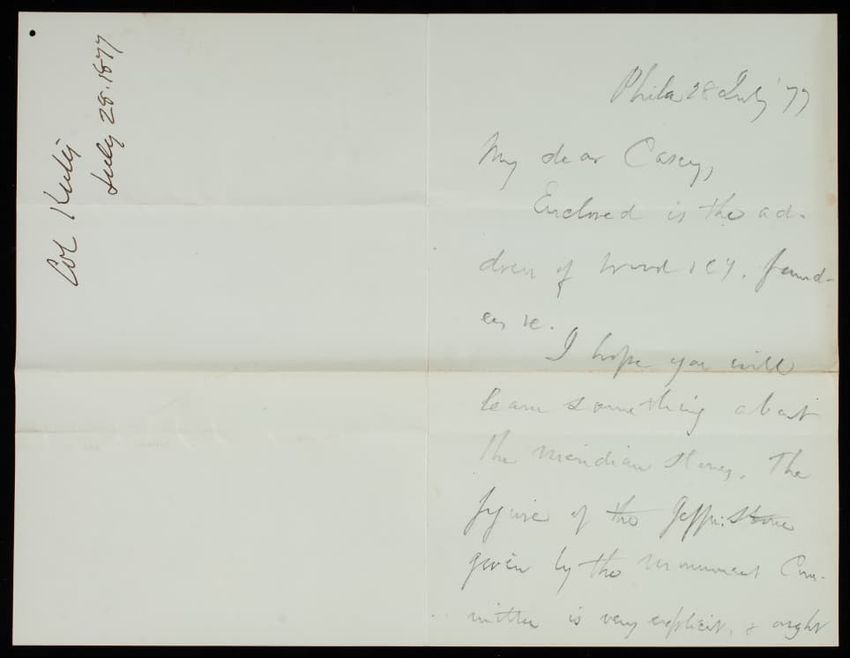 Col Kurtz
July 28. 1877
Phila 28 July '77
My dear Casey,
Enclosed is the ad-
dress of Wood & Cy. found-
ers &c.
I hope you will
learn something about
the meridian stones. The
figure of the Jeffn: Stone
given by the Monument Com-
mittee is very explicit, & ought